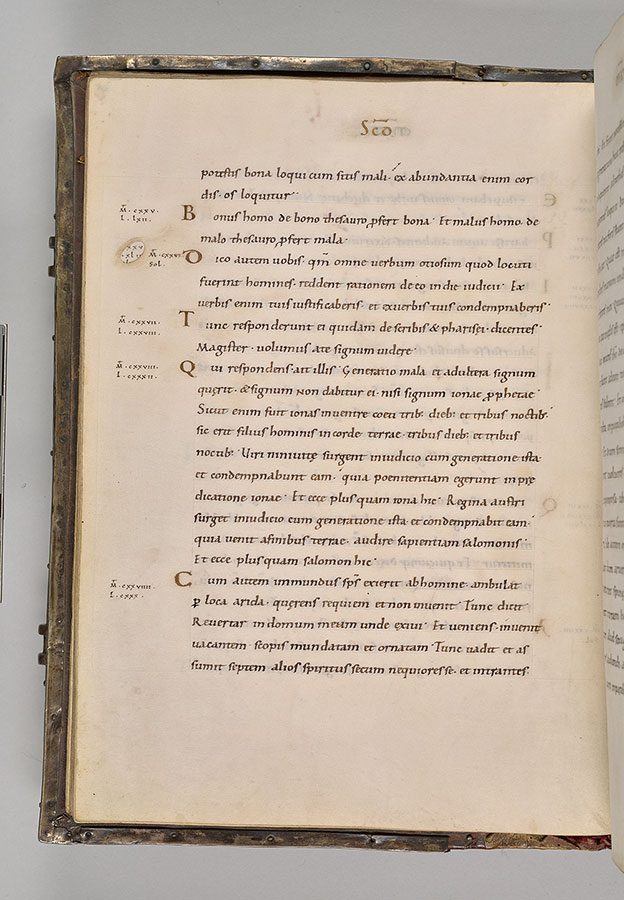 Scō
potestis bona loqui cum sitis mali · ex abundantia enim cor
dis · os loquitur ·
M̄ · cxxv ·
L · lxii ·
Bonus homo de bono thesauro ꝓfert bona · Et malus homo · de
malo thesauro ꝓfert mala ·
M̄ · cxxvi
Sol ·
Dico autem vobis · qm̄ omne verbum otiosum quod locuti
fuerint homines · reddent rationem de eo in die iudicii · Ex
verbis enim tuis iustificaberis · et ex verbis tuis condempnaberis ·
M̄ · cxxvii ·
L · cxxviii ·
Tunc responderunt ei quidam de scribis & pharisei · dicentes ·
Magister · volumus a te signum videre ·
M̄ · cxxviii ·
L · cxxxii ·
Qui respondens ait illis · Generatio mala et adultera signum
querit · & signum non dabitur ei · nisi signum ionae ꝓphetae ·
Sicut enim fuit ionas in ventre coeti trib; dieb; et tribus noctib;
sic erit filius hominis in corde terrae · tribus dieb; et tribus
noctib; Viri ninivitę surgent in iudicio cum generatione ista ·
et condempnabunt eam · quia poenitentiam egerunt in prę
dicatione ionae · Et ecce plus quam iona hic · Regina austri
surget in iudicio cum generatione ista · et condempnabit eam ·
quia venit a finibus terrae · audire sapientiam salomonis ·
Et ecce plus quam salomon hic ·
M̄ · cxxviiii ·
L · cxxx ·
Cum autem immundus sp̄s exierit ab homine · ambulat
ꝑ loca arida · querens requiem et non invenit · Tunc dicit
Revertar in domum meam unde exivi · Et veniens · invenit
vacantem · scopis mundatam et ornatam · Tunc vadit et as
sumit septem alios spiritus secum nequiores se · et intrantes